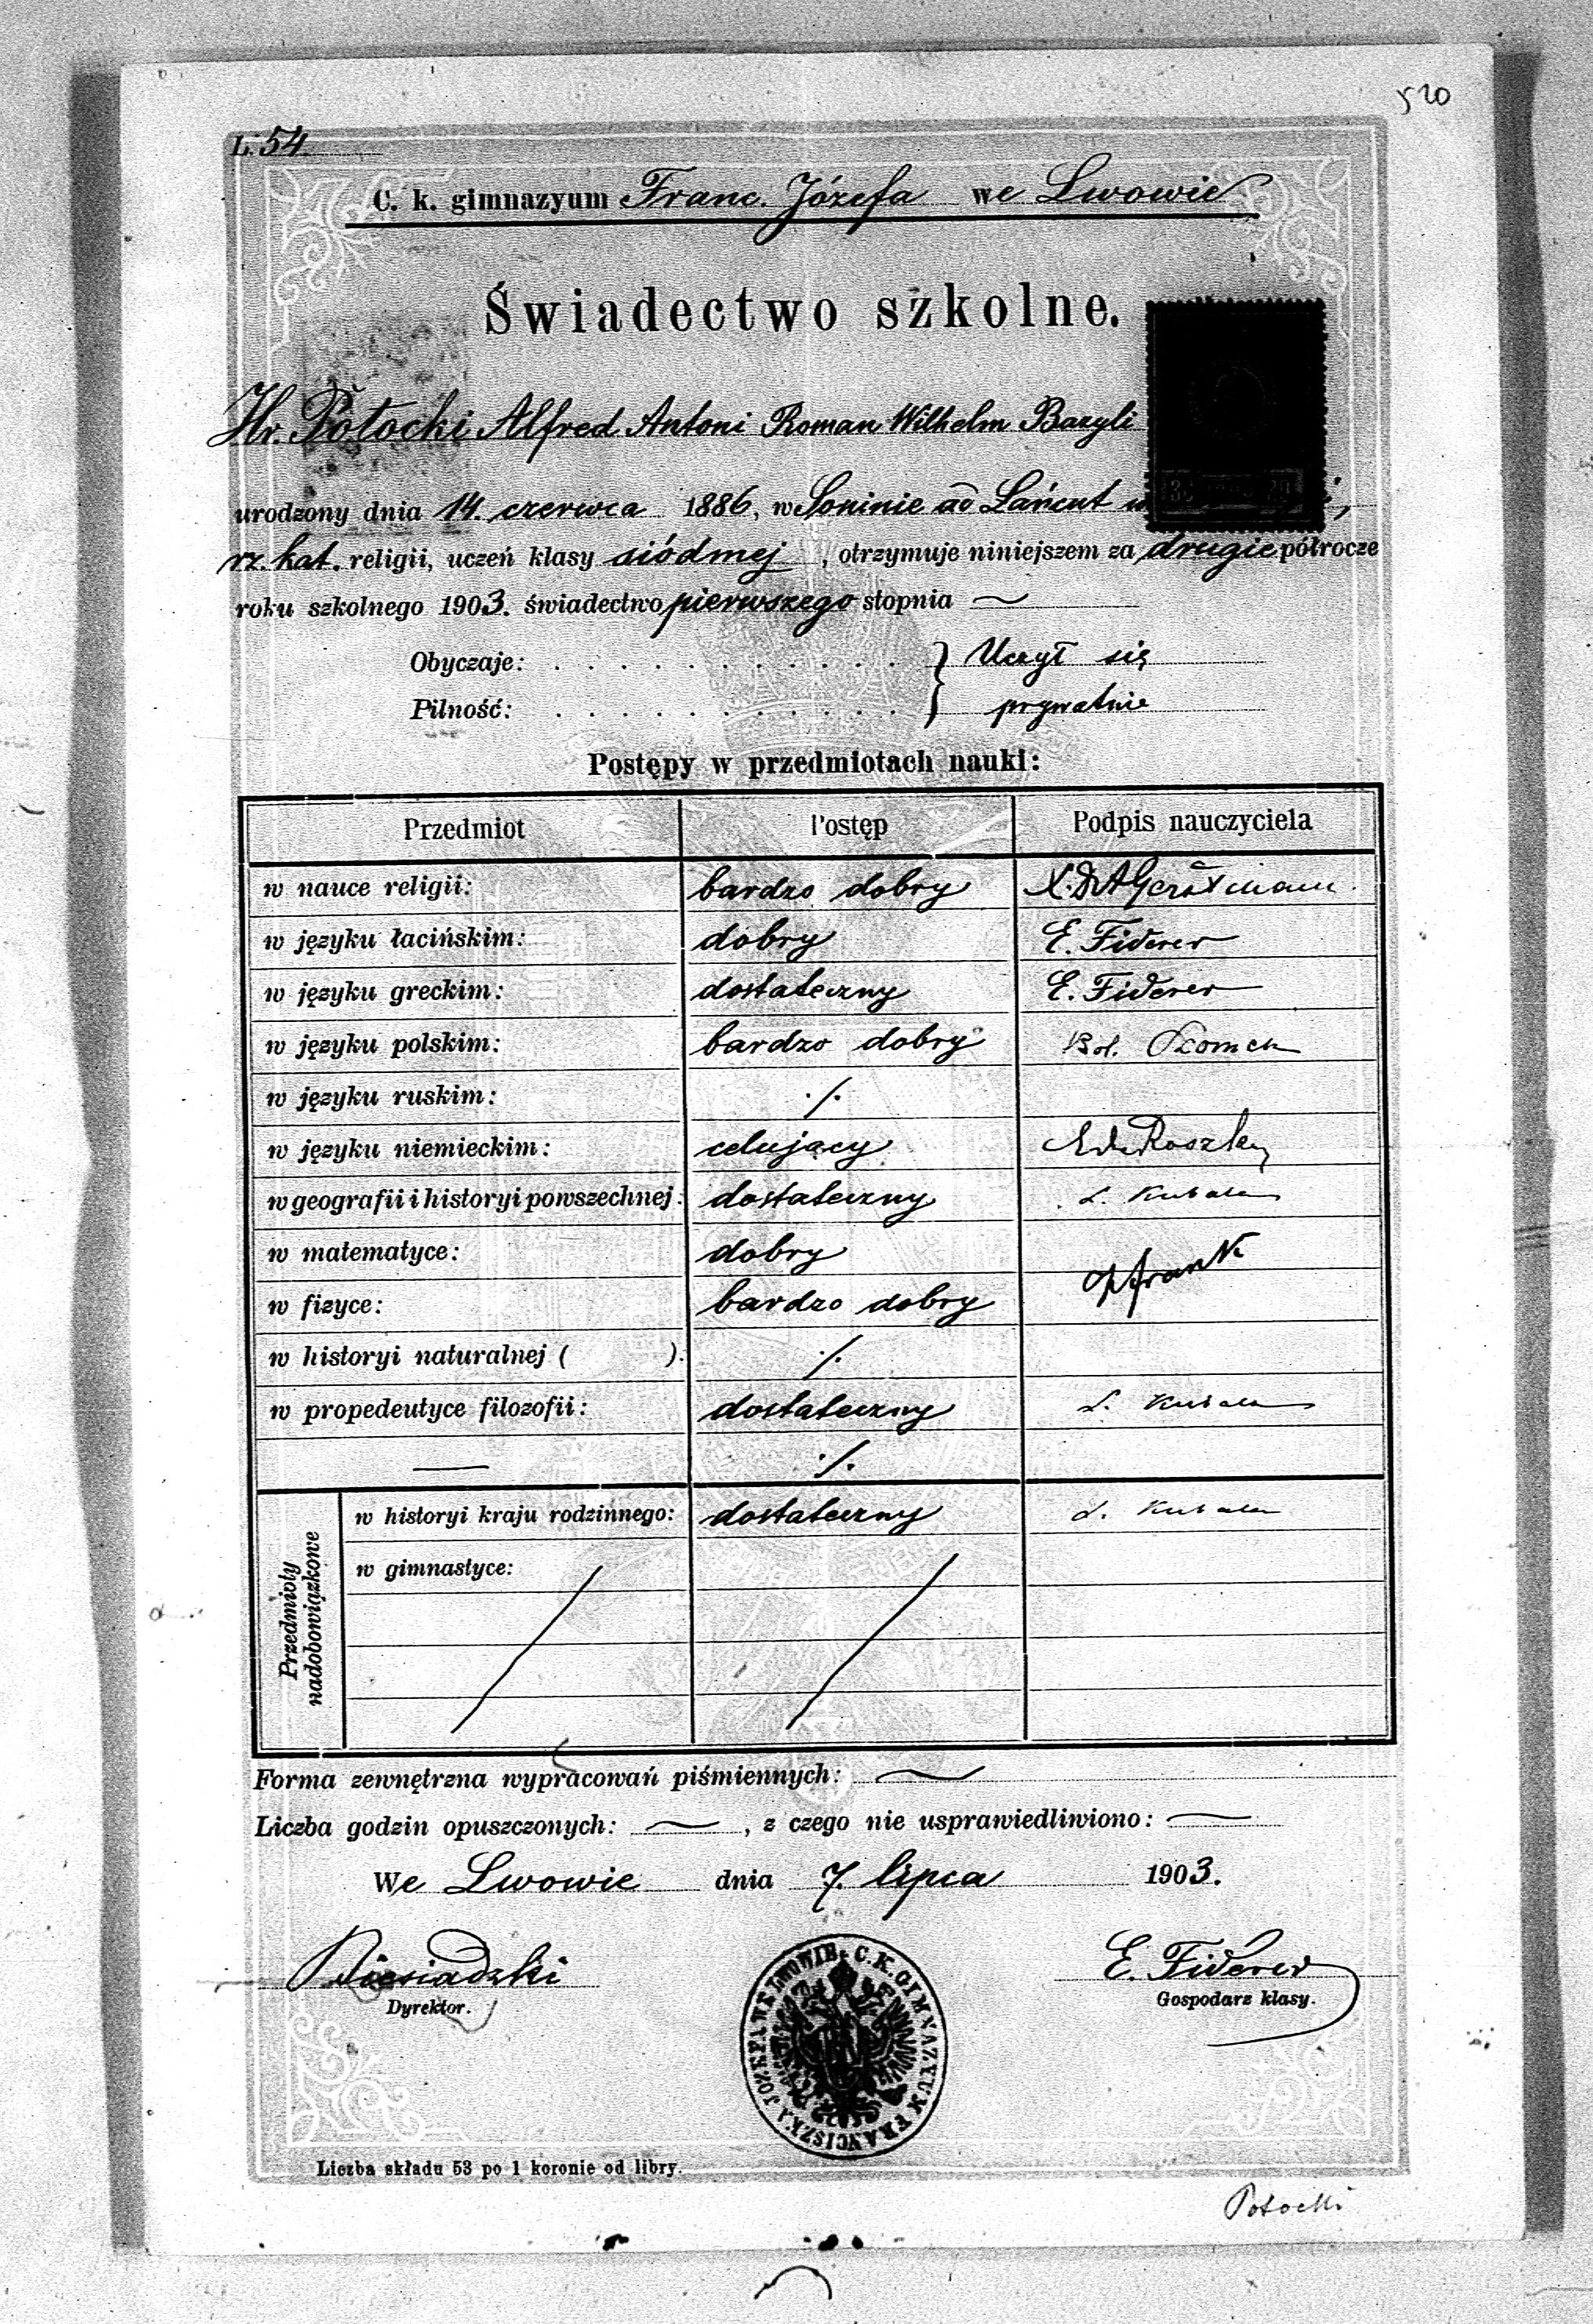 520
L. 54
C. k. gimnazyum Franc. Józefa we Lwowie
Świadectwo szkolne.
Hr. Potocki Alfred Antoni Roman Wilhelm Bazyli
urodzony dnia 14. czerwca 1886, w Soninie ad Łańcut
rz. kat. religii, uczeń klasy siódmej, otrzymuje niniejszem za drugie półrocze
roku szkolnego 1903. świadectwo pierwszego stopnia —
Obyczaje: . . . . . . . . . . . } Uczył się
Pilność: . . . . . . . . . . . } prywatnie
Postępy w przedmiotach nauki:
Przedmiot Postęp Podpis nauczyciela
w nauce religii: bardzo dobry X. Dr A Gerstmann
w języku łacińskim: dobry E. Fiderer
w języku greckim: dostateczny E. Fiderer
w języku polskim: bardzo dobry Bol.
w języku ruskim: ·/·
w języku niemieckim: celujący
w geografii i historyi powszechnej: dostateczny L. Kubala
w matematyce: dobry
w fizyce: bardzo dobry
w historyi naturalnej ( ). ·/·
w propedeutyce filozofii: dostateczny L. Kubala
— ·/·
Przedmioty nadobowiązkowe
w historyi kraju rodzinnego: dostateczny L. Kubala
w gimnastyce:
Forma zewnętrzna wypracowań piśmiennych: —
Liczba godzin opuszczonych: — , z czego nie usprawiedliwiono: —
We Lwowie dnia 7. lipca 1903.
Biesiadzki E. Fiderer
Dyrektor. Gospodarz klasy.
C. K. GIMNAZYUM FRANCISZKA JÓZEFA WE LWOWIE
Liczba składu 53 po 1 koronie od libry.
Potocki